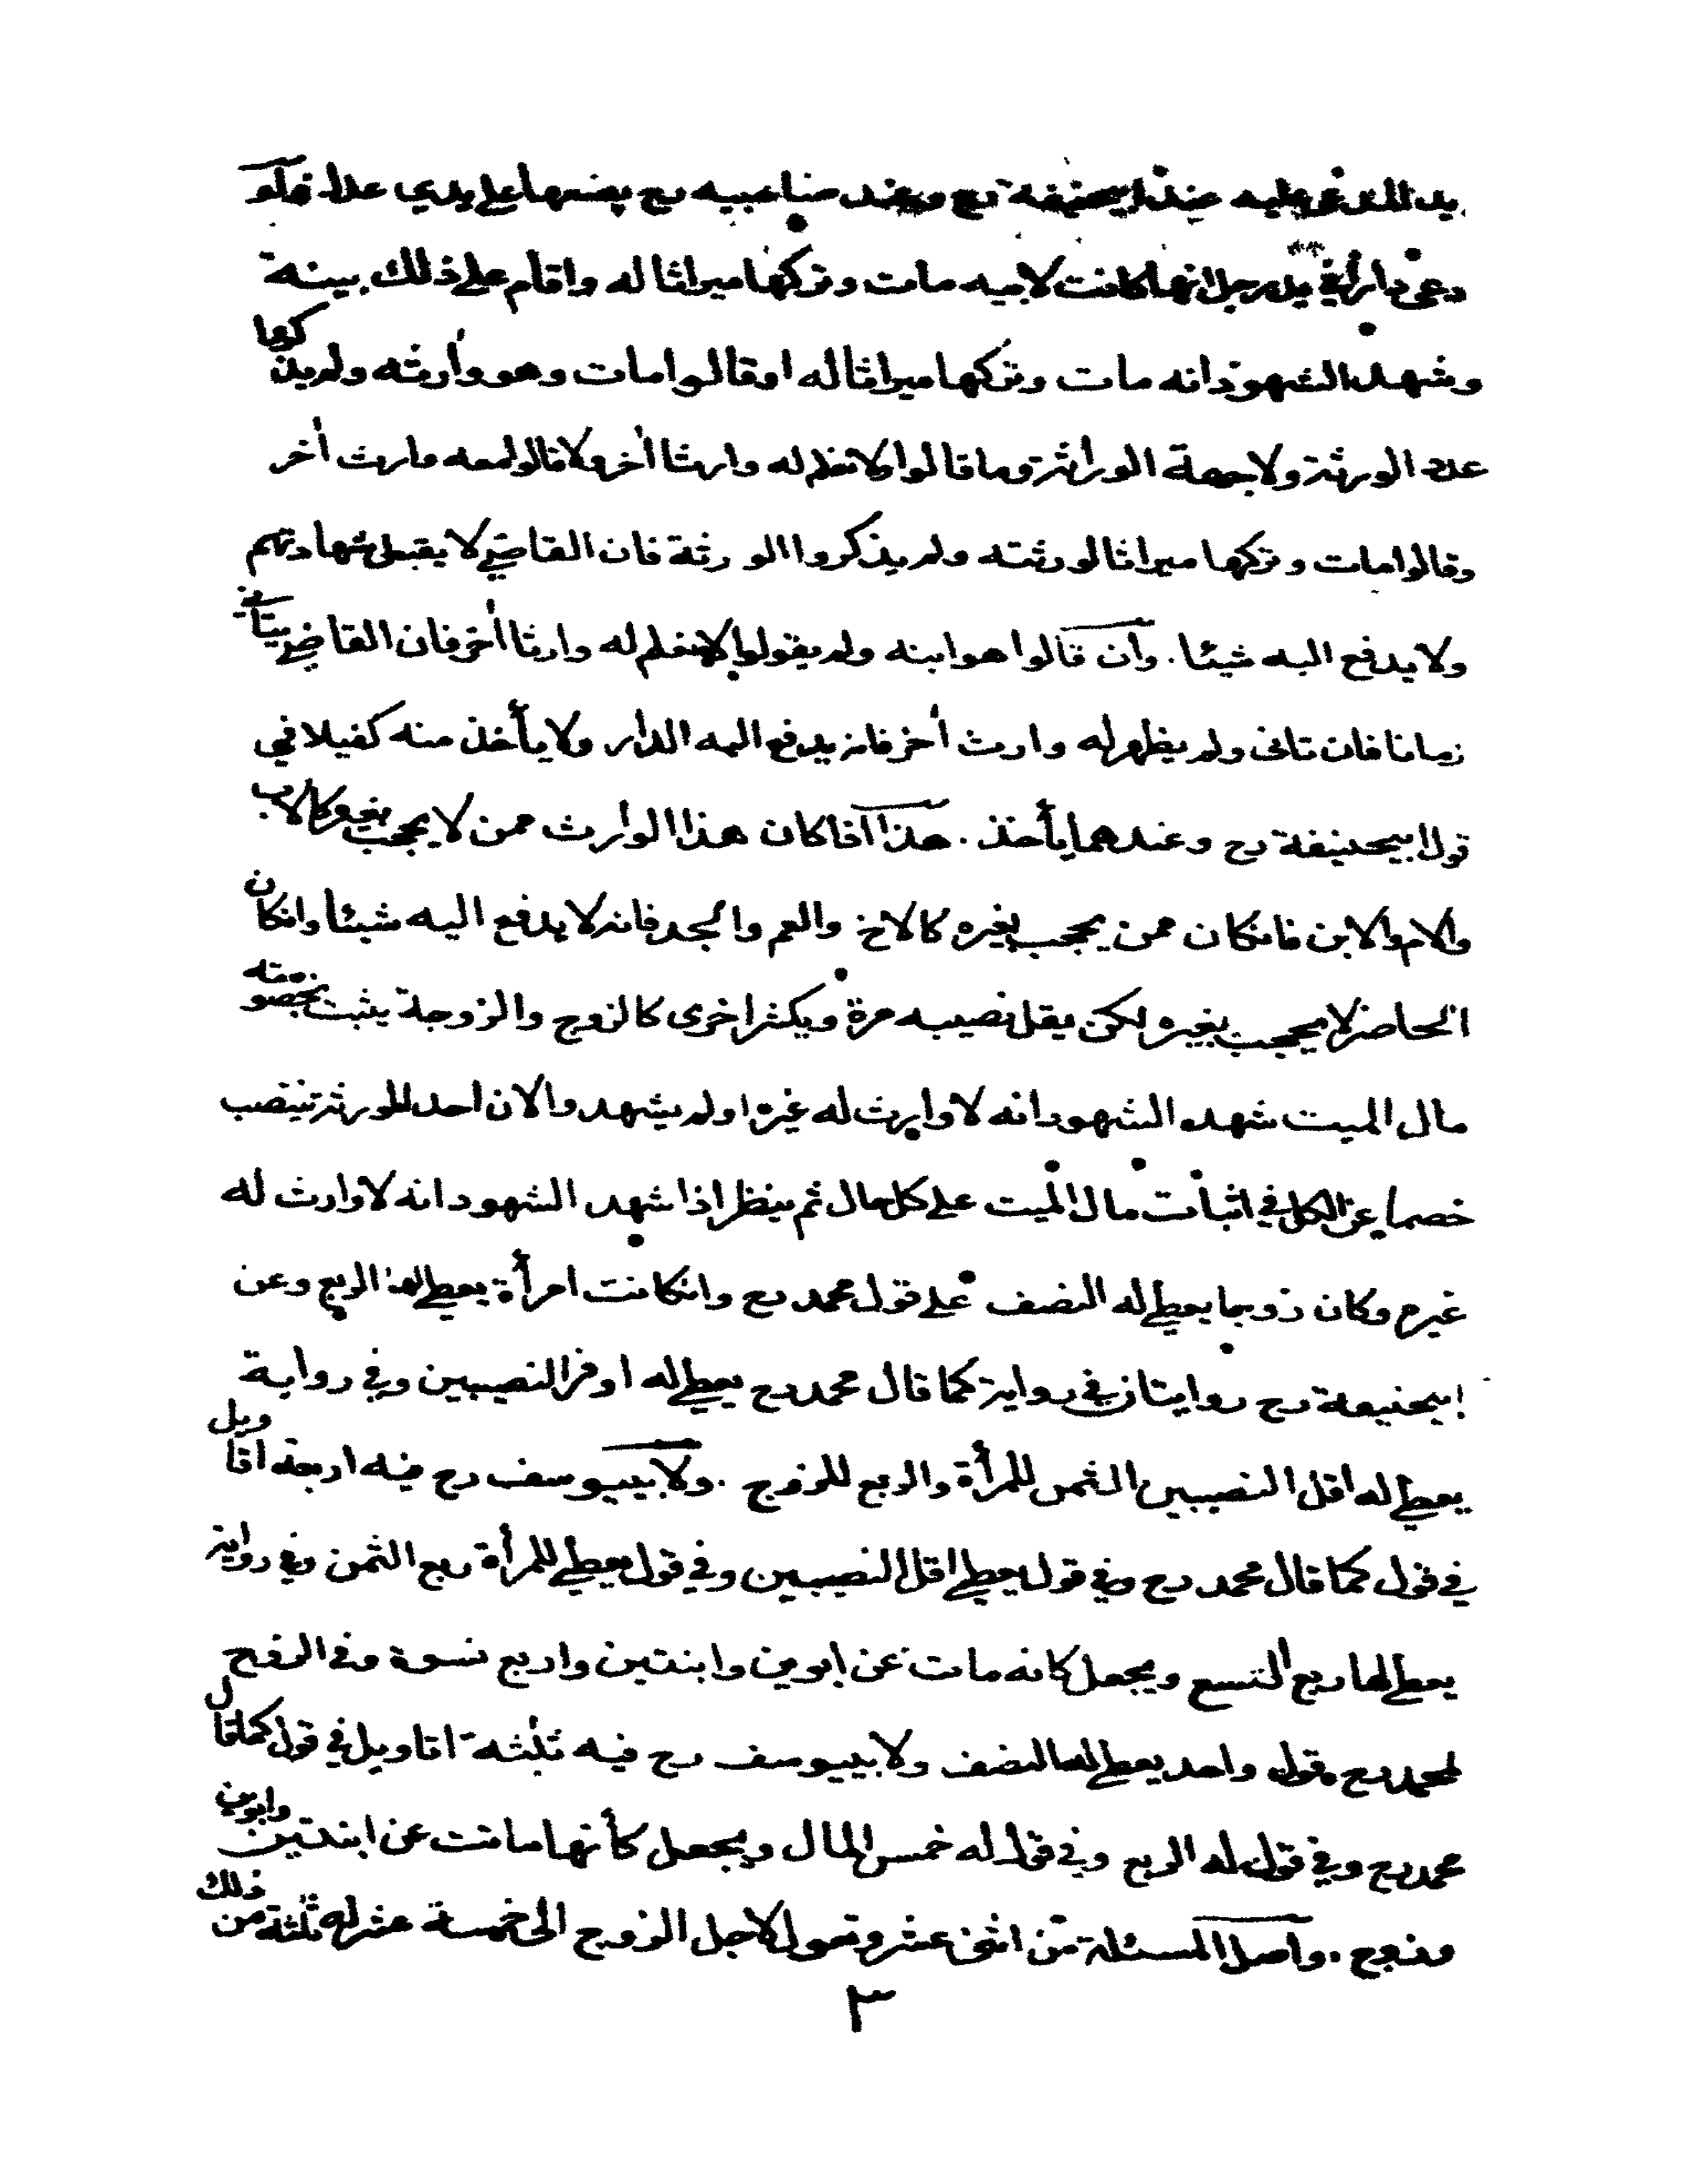 يد المدعى عليه عند ابيحنيفة رح وعند صاحبيه رح يضعها على يدي عدل فلو
دعى دارا في يد رجل انها كانت لابيه مات وتركها ميراثا له واقام على ذلك بينة
وشهد الشهود انه مات وتركها ميراثا له اوقالوا مات وهو وارثه ولم يذكروا
عدد الورثة ولا جهة الوراثة وما قالوا لا نعلم له وارثا اخر ولا قالوا معه وارث اخر
وقالوا مات وتركها ميراثا لورثته ولم يذكروا الورثة فان القاضي لا يقبل شهادتهم
ولا يدفع اليه شيئا . وان قالوا هو ابنه ولم يقولوا لا نعلم له وارثا اخر فان القاضي يتأنى
زمانا فان تانى ولم يظهر له وارث اخر فانه يدفع اليه الدار ولا يأخذ منه كفيلا في
قول ابيحنيفة رح وعندهما يأخذ . هذا اذا كان هذا الوارث ممن لا يحجب بغيره كالاب
والام والابن فانكان ممن يحجب بغيره كالاخ والعم والجد فانه لا يدفع اليه شيئا وانكان
الحاضر لا يحجب بغيره لكن يقل نصيبه مرة ويكثر اخرى كالزوج والزوجة يثبت بخصومته
مال الميت شهد الشهود انه لا وارث له غيره اولم يشهدوا لان احد الورثة ينتصب
خصما عن الكل في اثبات مال الميت على كل حال ثم ينظر اذا شهد الشهود انه لا وارث له
غيره وكان زوجا يعطى له النصف على قول محمد رح وانكانت امرأة يعطى لها الربع وعن
ابيحنيفة رح روايتان في رواية كما قال محمد رح يعطى له اوفر النصيبين وفي رواية
يعطى له اقل النصيبين الثمن للمرأة والربع للزوج . ولابييوسف رح فيه اربعة اقاويل
في قول كما قال محمد رح وفي قول يعطى اقل النصيبين وفي قول يعطى للمرأة ربع الثمن وفي رواية
يعطى لها ربع التسع ويجعل كانه مات عن ابوين وابنتين واربع نسوة وفي الزوج
لمحمد رح قول واحد يعطى لها النصف ولابييوسف رح فيه ثلثة اقاويل في قول كما قال
محمد رح وفي قول له الربع وفي قول له خمس المال ويجعل كأنها ماتت عن ابنتين وابوين
وزوج . واصل المسئلة من اثنى عشر وتعول لاجل الزوج الى خمسة عشر له ثلثة من ذلك
٣